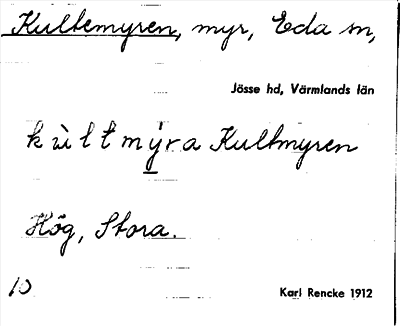 Kultemyren, myr, Eda sn,
Jösse hd, Värmlands län
kùltmy̌ra Kultmyren
Hög, Stora.
10
Karl Rencke 1912